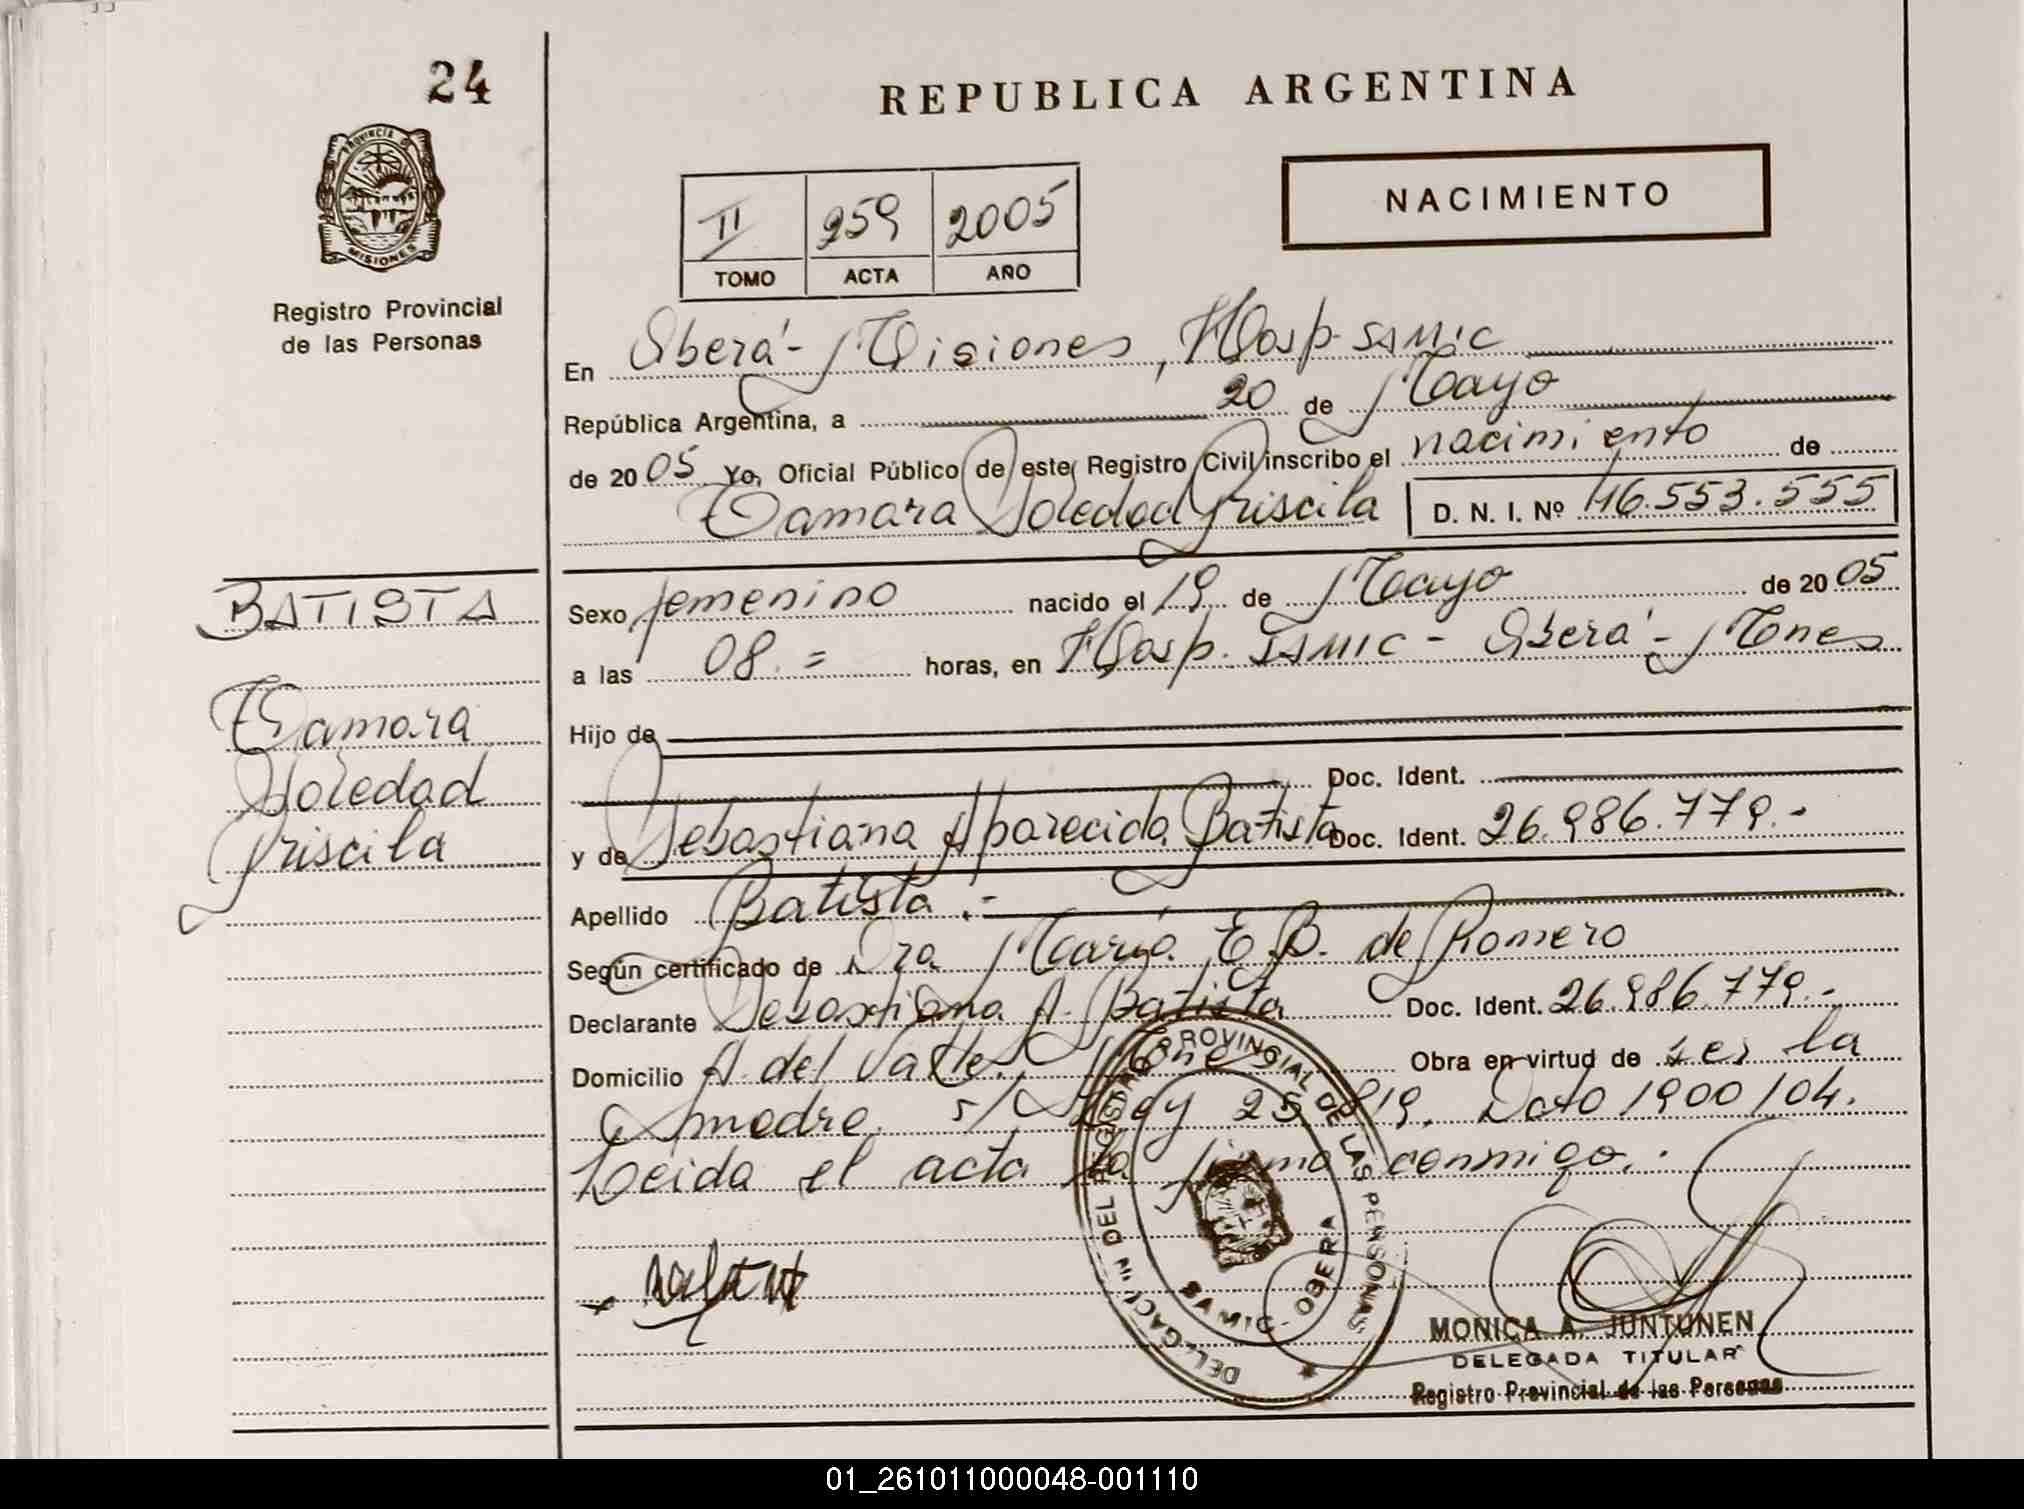 24
REPUBLICA ARGENTINA
PROVINCIA D
MISIONES
Registro Provincial
de las Personas
NACIMIENTO
II 259 2005
TOMO ACTA AÑO
En Oberá - Misiones, Hosp. SAMIC
República Argentina, a 20 de Mayo
de 2005 Yo, Oficial Público de este Registro Civil inscribo el nacimiento de
Tamara Soledad Priscila D. N. I. Nº 46.553.555
BATISTA
Tamara
Soledad
Priscila
Sexo femenino nacido el 19 de Mayo de 2005
a las 08.= horas, en Hosp. SAMIC - Oberá - Mones
Hijo de
Doc. Ident.
y de Sebastiana Aparecida Batista Doc. Ident. 26.986.779.-
Apellido Batista.-
Según certificado de Dra María E.B. de Romero
Declarante Sebastiana A. Batista Doc. Ident. 26.986.779.-
Domicilio A. del Valle. Mones Obra en virtud de ser la
madre. s/ Ley 25.819. Dcto 1900/04.
Leida el acta la firma conmigo.
DELEGACION DEL REGISTRO PROVINCIAL DE LAS PERSONAS
SAMIC - OBERA
MONICA A. JUNTUNEN
DELEGADA TITULAR
Registro Provincial de las Personas
01_261011000048-001110